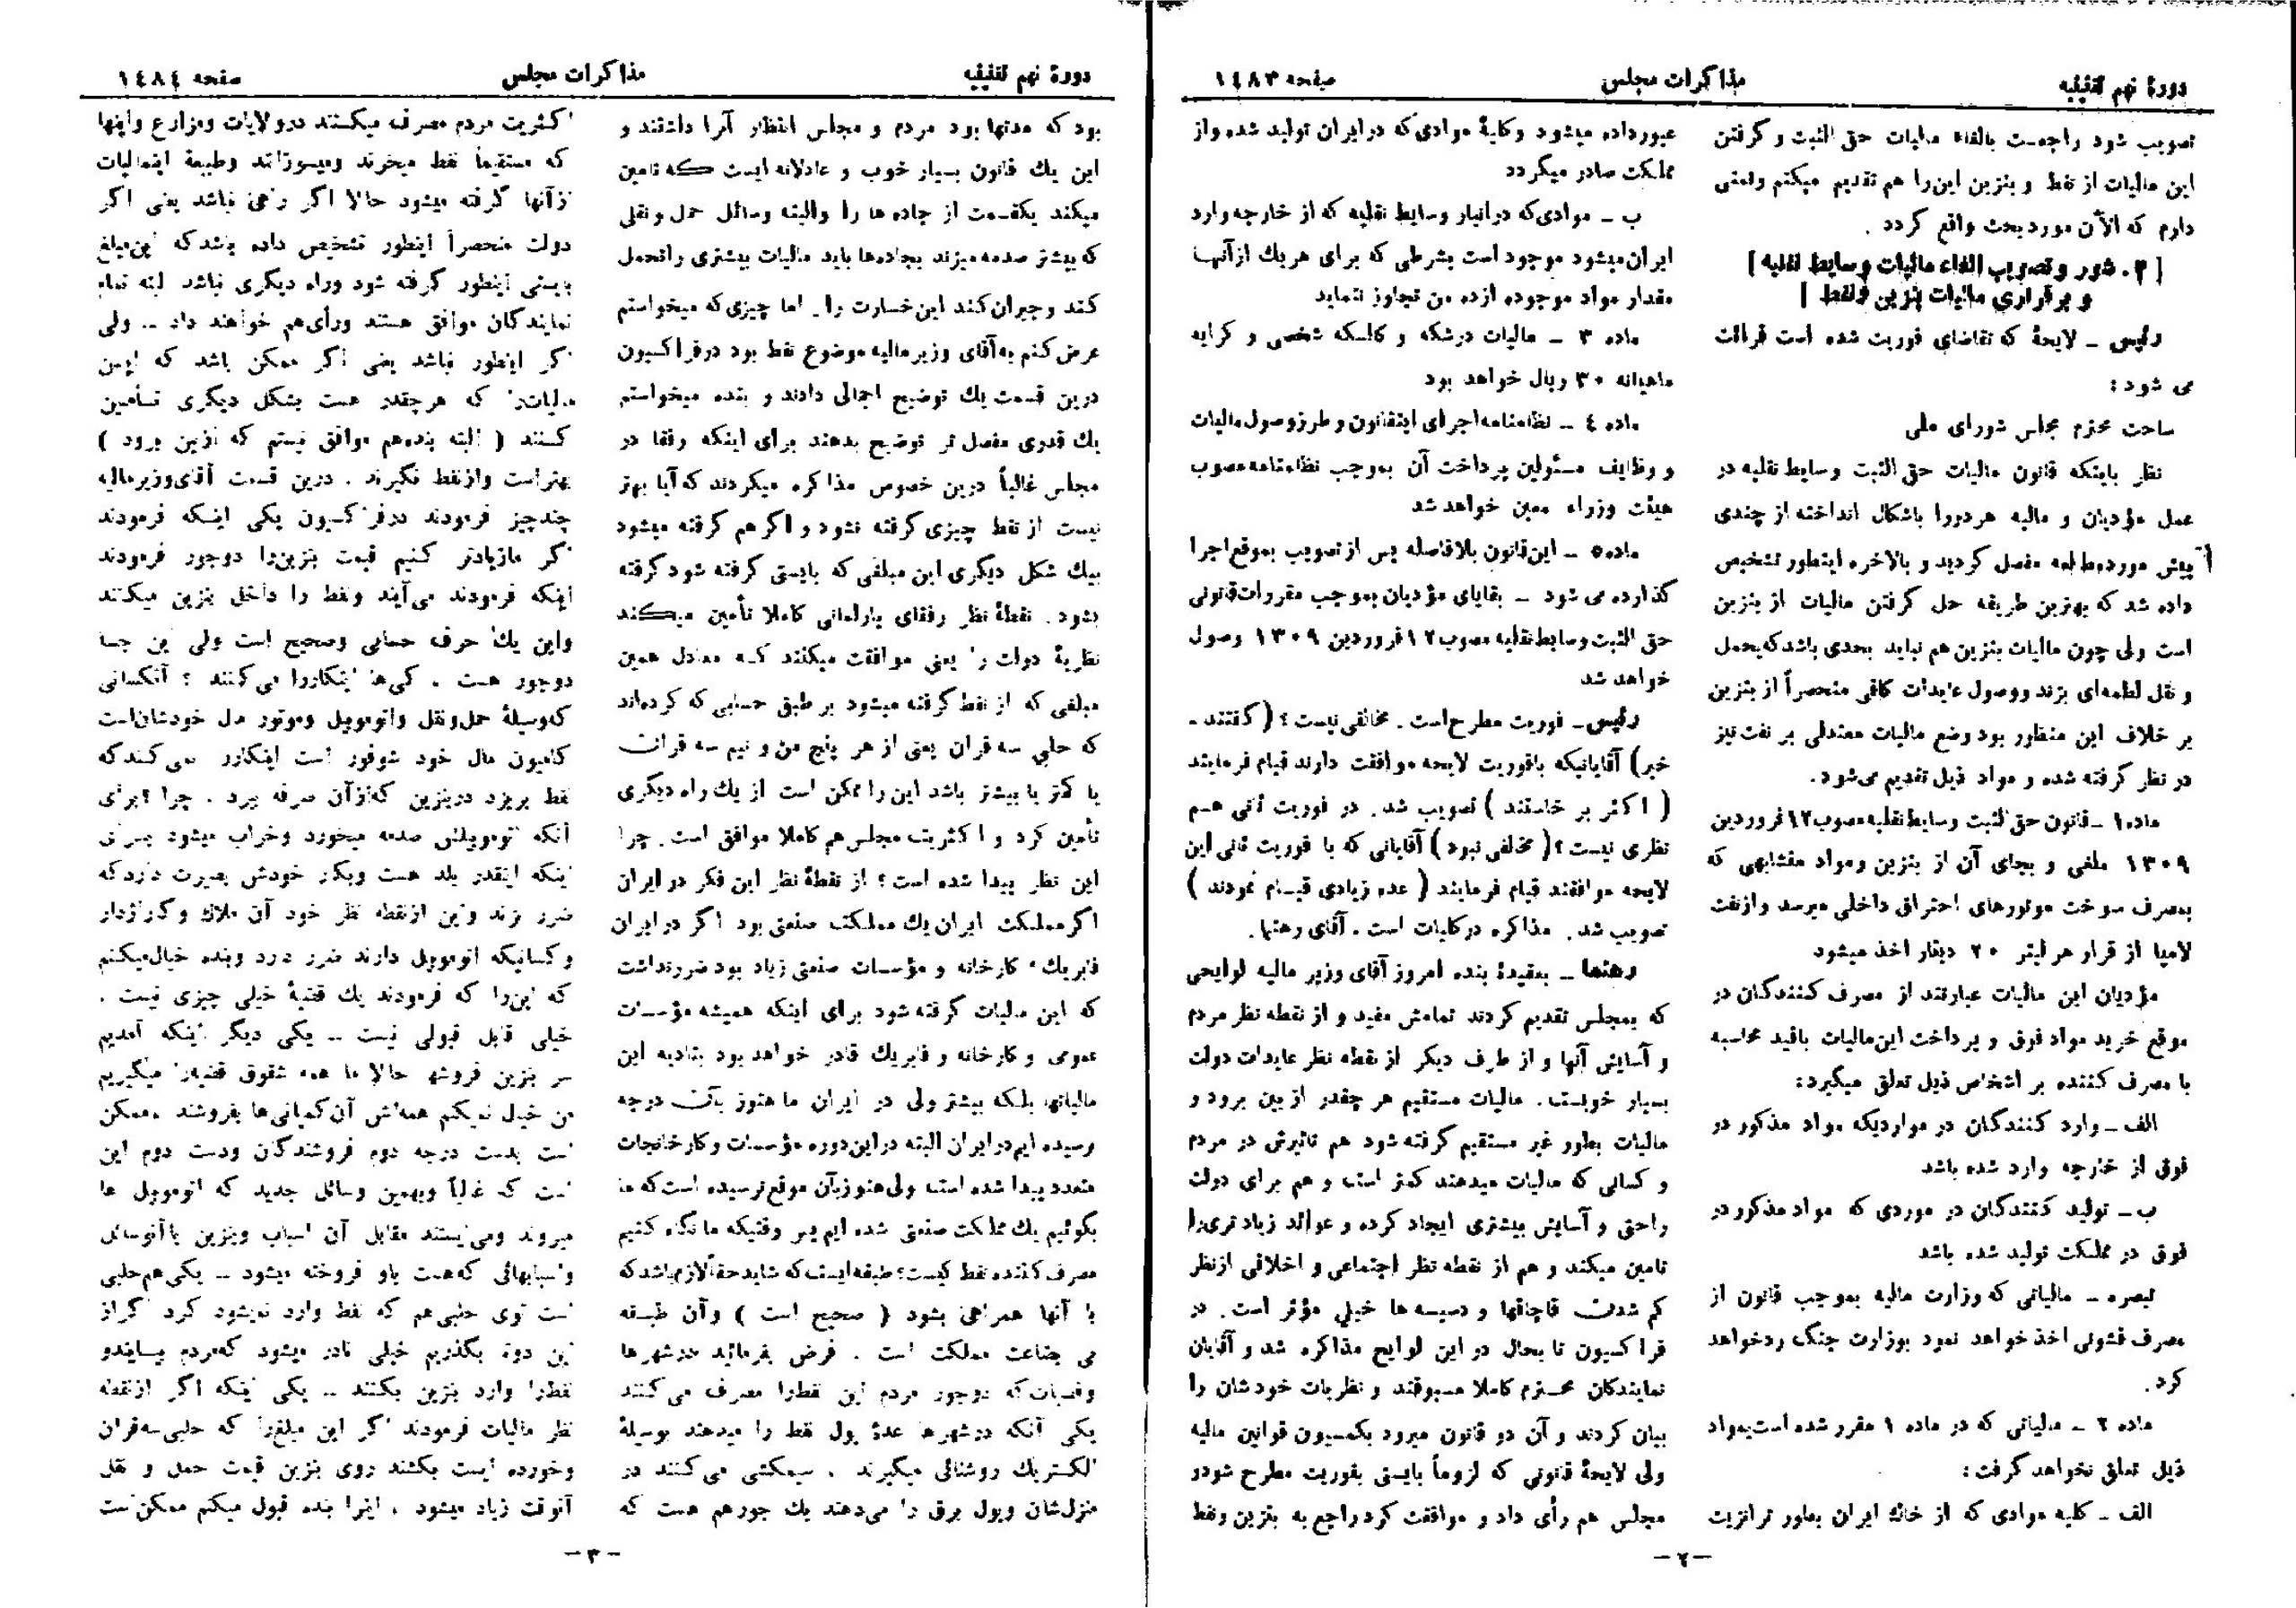 دورهٔ نهم تقنینیه
مذاکرات مجلس
صفحه ۱٤۸۳
تصویب شود راجعست بالغاء مالیات حق الثبت و گرفتن
این مالیات از نفط و بنزین این را هم تقدیم میکنم و تمنی
دارم که الآن مورد بحث واقع گردد .
[ ۳ـ شور و تصویب الغاء مالیات وسایط نقلیه ]
و برقراری مالیات بنزین و نفط ]
رئیس ـ لایحهٔ که تقاضای فوریت شده است قرائت
می شود :
ساحت محترم مجلس شورای ملی
نظر باینکه قانون مالیات حق الثبت وسایط نقلیه در
عمل مؤدیان و مالیه هردو را باشکال انداخته از چندی
پیش مورد مطالعه مفصل گردید و بالاخره اینطور تشخیص
داده شد که بهترین طریقه حل گرفتن مالیات از بنزین
است ولی چون مالیات بنزین هم نباید بحدی باشد که بحمل
و نقل لطمه‌ای بزند و وصول عایدات کافی منحصراً از بنزین
بر خلاف این منظور بود وضع مالیات معتدلی بر نفت نیز
در نظر گرفته شده و مواد ذیل تقدیم می‌شود.
ماده۱ ـ قانون حق الثبت وسایط نقلیه مصوب ۱۲ فروردین
۱۳۰۹ ملغی و بجای آن از بنزین ومواد متشابهی که
بمصرف سوخت موتورهای احتراق داخلی میرسد و از نفت
لامپا از قرار هر لیتر ۲۰ دینار اخذ میشود
مؤدیان این مالیات عبارتند از مصرف کنندگان در
موقع خرید مواد فوق و پرداخت این مالیات باقید محاسبه
با مصرف کننده بر اشخاص ذیل تعلق میگیرد:
الف ـ وارد کنندگان در مواردیکه مواد مذکور در
فوق از خارجه وارد شده باشد
ب ـ تولید کنندگان در موردی که مواد مذکور در
فوق در مملکت تولید شده باشد
تبصره ـ مالیاتی که وزارت مالیه بموجب قانون از
مصرف قشونی اخذ خواهد نمود بوزارت جنگ رد خواهد
کرد .
ماده ۲ ـ مالیاتی که در ماده ۱ مقرر شده است بمواد
ذیل تعلق نخواهد گرفت :
الف ـ کلیه موادی که از خاك ایران بطور ترانزیت
عبور داده میشود و کلیهٔ موادی که در ایران تولید شده و از
مملکت صادر میگردد
ب ـ موادی که در انبار وسایط نقلیه که از خارجه وارد
ایران میشود موجود است بشرطی که برای هر یك از آنها
مقدار مواد موجوده از ده من تجاوز ننماید
ماده ۳ ـ مالیات درشکه و کالسکه شخصی و کرایه
ماهیانه ۳۰ ریال خواهد بود
ماده ٤ ـ نظامنامه اجرای این قانون و طرز وصول مالیات
و وظایف مسئولین پرداخت آن بموجب نظامنامه مصوب
هیئت وزراء معین خواهد شد
ماده ۵ ـ این قانون بلافاصله پس از تصویب بموقع اجرا
گذارده می شود ـ بقایای مؤدیان بموجب مقررات قانونی
حق الثبت وسایط نقلیه مصوب ۱۲ فروردین ۱۳۰۹ وصول
خواهد شد
رئیس ـ فوریت مطرح است . مخالفی نیست ؟ ( گفتند ـ
خیر) آقایانیکه بافوریت لایحه موافقت دارند قیام فرمایند
( اکثر بر خاستند ) تصویب شد . در فوریت ثانی هم
نظری نیست ؟ ( مخالفی نبود ) آقایانی که با فوریت ثانی این
لایحه موافقند قیام فرمایند ( عده زیادی قیام نمودند )
تصویب شد . مذاکره در کلیات است . آقای رهنما .
رهنما ـ بعقیدهٔ بنده امروز آقای وزیر مالیه لوایحی
که بمجلس تقدیم کردند تمامش مفید و از نقطه نظر مردم
و آسایش آنها و از طرف دیگر از نقطه نظر عایدات دولت
بسیار خوبست . مالیات مستقیم هر چقدر از بین برود و
مالیات بطور غیر مستقیم گرفته شود هم تاثیرش در مردم
و کسانی که مالیات میدهند کمتر است و هم برای دولت
راحتی و آسایش بیشتری ایجاد کرده و عوائد زیاد تری را
تامین میکند و هم از نقطه نظر اجتماعی و اخلاقی از نظر
کم شدن قاچاقها و دسیسه ها خیلی مؤثر است . در
فراکسیون تا بحال در این لوایح مذاکره شد و آقایان
نمایندگان محترم کاملا مسبوقند و نظریات خودشان را
بیان کردند و آن دو قانون میرود بکمسیون قوانین مالیه
ولی لایحهٔ قانونی که لزوماً بایستی بفوریت مطرح شود و
مجلس هم رأی داد و موافقت کرد راجع به بنزین و نفط
ـ ۲ ـ
دورهٔ نهم تقنینیه
مذاکرات مجلس
صفحه ۱٤۸٤
بود که مدتها بود مردم و مجلس انتظار آنرا داشتند و
این یك قانون بسیار خوب و عادلانه ایست که تامین
میکند یکقسمت از جاده ها را والبته وسائل حمل و نقلی
که بیشتر صدمه میزند بجاده‌ها باید مالیات بیشتری را تحمل
کند و جبران کند این خسارت را . اما چیزی که میخواستم
عرض کنم به آقای وزیر مالیه موضوع نفط بود در فراکسیون
درین قسمت یك توضیح اجمالی دادند و بنده میخواستم
یك قدری مفصل تر توضیح بدهند برای اینکه رفقا در
مجلس غالباً درین خصوص مذاکره میکردند که آیا بهتر
نیست از نفط چیزی گرفته نشود و اگر هم گرفته میشود
بیك شکل دیگری این مبلغی که بایستی گرفته شود گرفته
بشود . نقطهٔ نظر رفقای پارلمانی کاملا تأمین میکند
نظریهٔ دولت را یعنی موافقت میکنند که معادل همین
مبلغی که از نفط گرفته میشود بر طبق حسابی که کرده‌اند
که حلبی سه قران یعنی از هر پنج من و نیم سه قران
یا کمتر یا بیشتر باشد این را ممکن است از یك راه دیگری
تأمین کرد و اکثریت مجلس هم کاملا موافق است . چرا
این نظر پیدا شده است ؟ از نقطهٔ نظر این فکر در ایران
اگر مملکت ایران یك مملکت صنعتی بود اگر در ایران
فابریك ، کارخانه و مؤسسات صنعتی زیاد بود ضرر نداشت
که این مالیات گرفته شود برای اینکه همیشه مؤسسات
عمومی و کارخانه و فابریك قادر خواهد بود بتادیه این
مالیاتها بلکه بیشتر ولی در ایران ما هنوز بآن درجه
نرسیده ایم در ایران البته در این دوره مؤسسات و کارخانجات
متعدد پیدا شده است ولی هنوز بآن موقع نرسیده است که ما
بگوئیم یك مملکت صنعتی شده ایم پس وقتیکه ما نگاه کنیم
مصرف کننده نفط کیست ؟ طبقه ایست که شاید حقاً لازم باشد که
با آنها همراهی بشود ( صحیح است ) و آن طبقه
بی بضاعت مملکت است . فرض بفرمائید در شهرها
وقصبات که دوجور مردم این نفط را مصرف می کنند
یکی آنکه در شهرها عدهٔ پول نفط را میدهند بوسیلهٔ
الکتریك روشنائی میگیرند . سیمکشی می کنند در
منزلشان وپول برق را می‌دهند یك جور هم هست که
اکثریت مردم مصرف میکنند در ولایات و مزارع و اینها
که مستقیماً نفط میخرند و میسوزانند وطبیعة این مالیات
از آنها گرفته میشود حالا اگر راهی نباشد یعنی اگر
دولت منحصراً اینطور تشخیص داده باشد که این مبلغ
بایستی اینطور گرفته شود وراه دیگری نباشد البته تمام
نمایندگان موافق هستند ورأی هم خواهند داد .. ولی
اگر اینطور نباشد یعنی اگر ممکن باشد که این
مالیات را که هرچقدر هست بشکل دیگری تأمین
کنند ( البته بنده هم موافق نیستم که از بین برود )
بهتر است و از نفط نگیرند . درین قسمت آقای وزیر مالیه
چند چیز فرمودند در فراکسیون یکی اینکه فرمودند
اگر ما زیادتر کنیم قیمت بنزین را دوجور فرمودند
اینکه فرمودند می‌آیند ونفط را داخل بنزین میکنند
واین یك حرف حسابی وصحیح است ولی این جا
دوجور هست . کی‌ها اینکار را می‌کنند ؟ آنکسانی
که وسیلهٔ حمل و نقل واتوموبیل وموتور مال خودشان است
کامیون مال خود شوفور است اینکار را نمی کند که
نفط بریزد در بنزین که از آن صرفه ببرد . چرا ؟ برای
آنکه اتوموبیلش صدمه میخورد وخراب میشود برای
اینکه اینقدر بلد هست وبکار خودش بصیرت دارد که
ضرر نزند واین از نقطه نظر خود آن ملاك و گاراژدار
و کسانیکه اتوموبیل دارند ضرر دارد وبنده خیال میکنم
که این را که فرمودند یك قضیهٔ خیلی چیزی نیست .
خیلی قابل قبولی نیست .. یکی دیگر اینکه آمدیم
سر بنزین فروشها حالا ما همه شقوق قضیه را میگیریم
من خیال نمیکنم همه‌اش آن کمپانی‌ها بفروشند ممکن
است بدست درجه دوم فروشندگان ودست دوم این
است که غالباً وبهمین وسائل جدید که اتوموبیل ها
میروند ومی‌ایستند مقابل آن اسباب وبنزین با آن وسائل
واسبابهائی که هست باو فروخته میشود .. یکی هم حلبی
است توی حلبی هم که نفط وارد نمیشود کرد اگر از
این دوتا بگذریم خیلی نادر میشود که مردم بیایند و
نفط را وارد بنزین بکنند .. یکی اینکه اگر از نقطه
نظر مالیات فرمودند اگر این مبلغ را که حلبی سه قران
وخورده ایست بکشند روی بنزین قیمت حمل و نقل
آنوقت زیاد میشود . اینرا بنده قبول میکنم ممکن است
ـ ۳ ـ